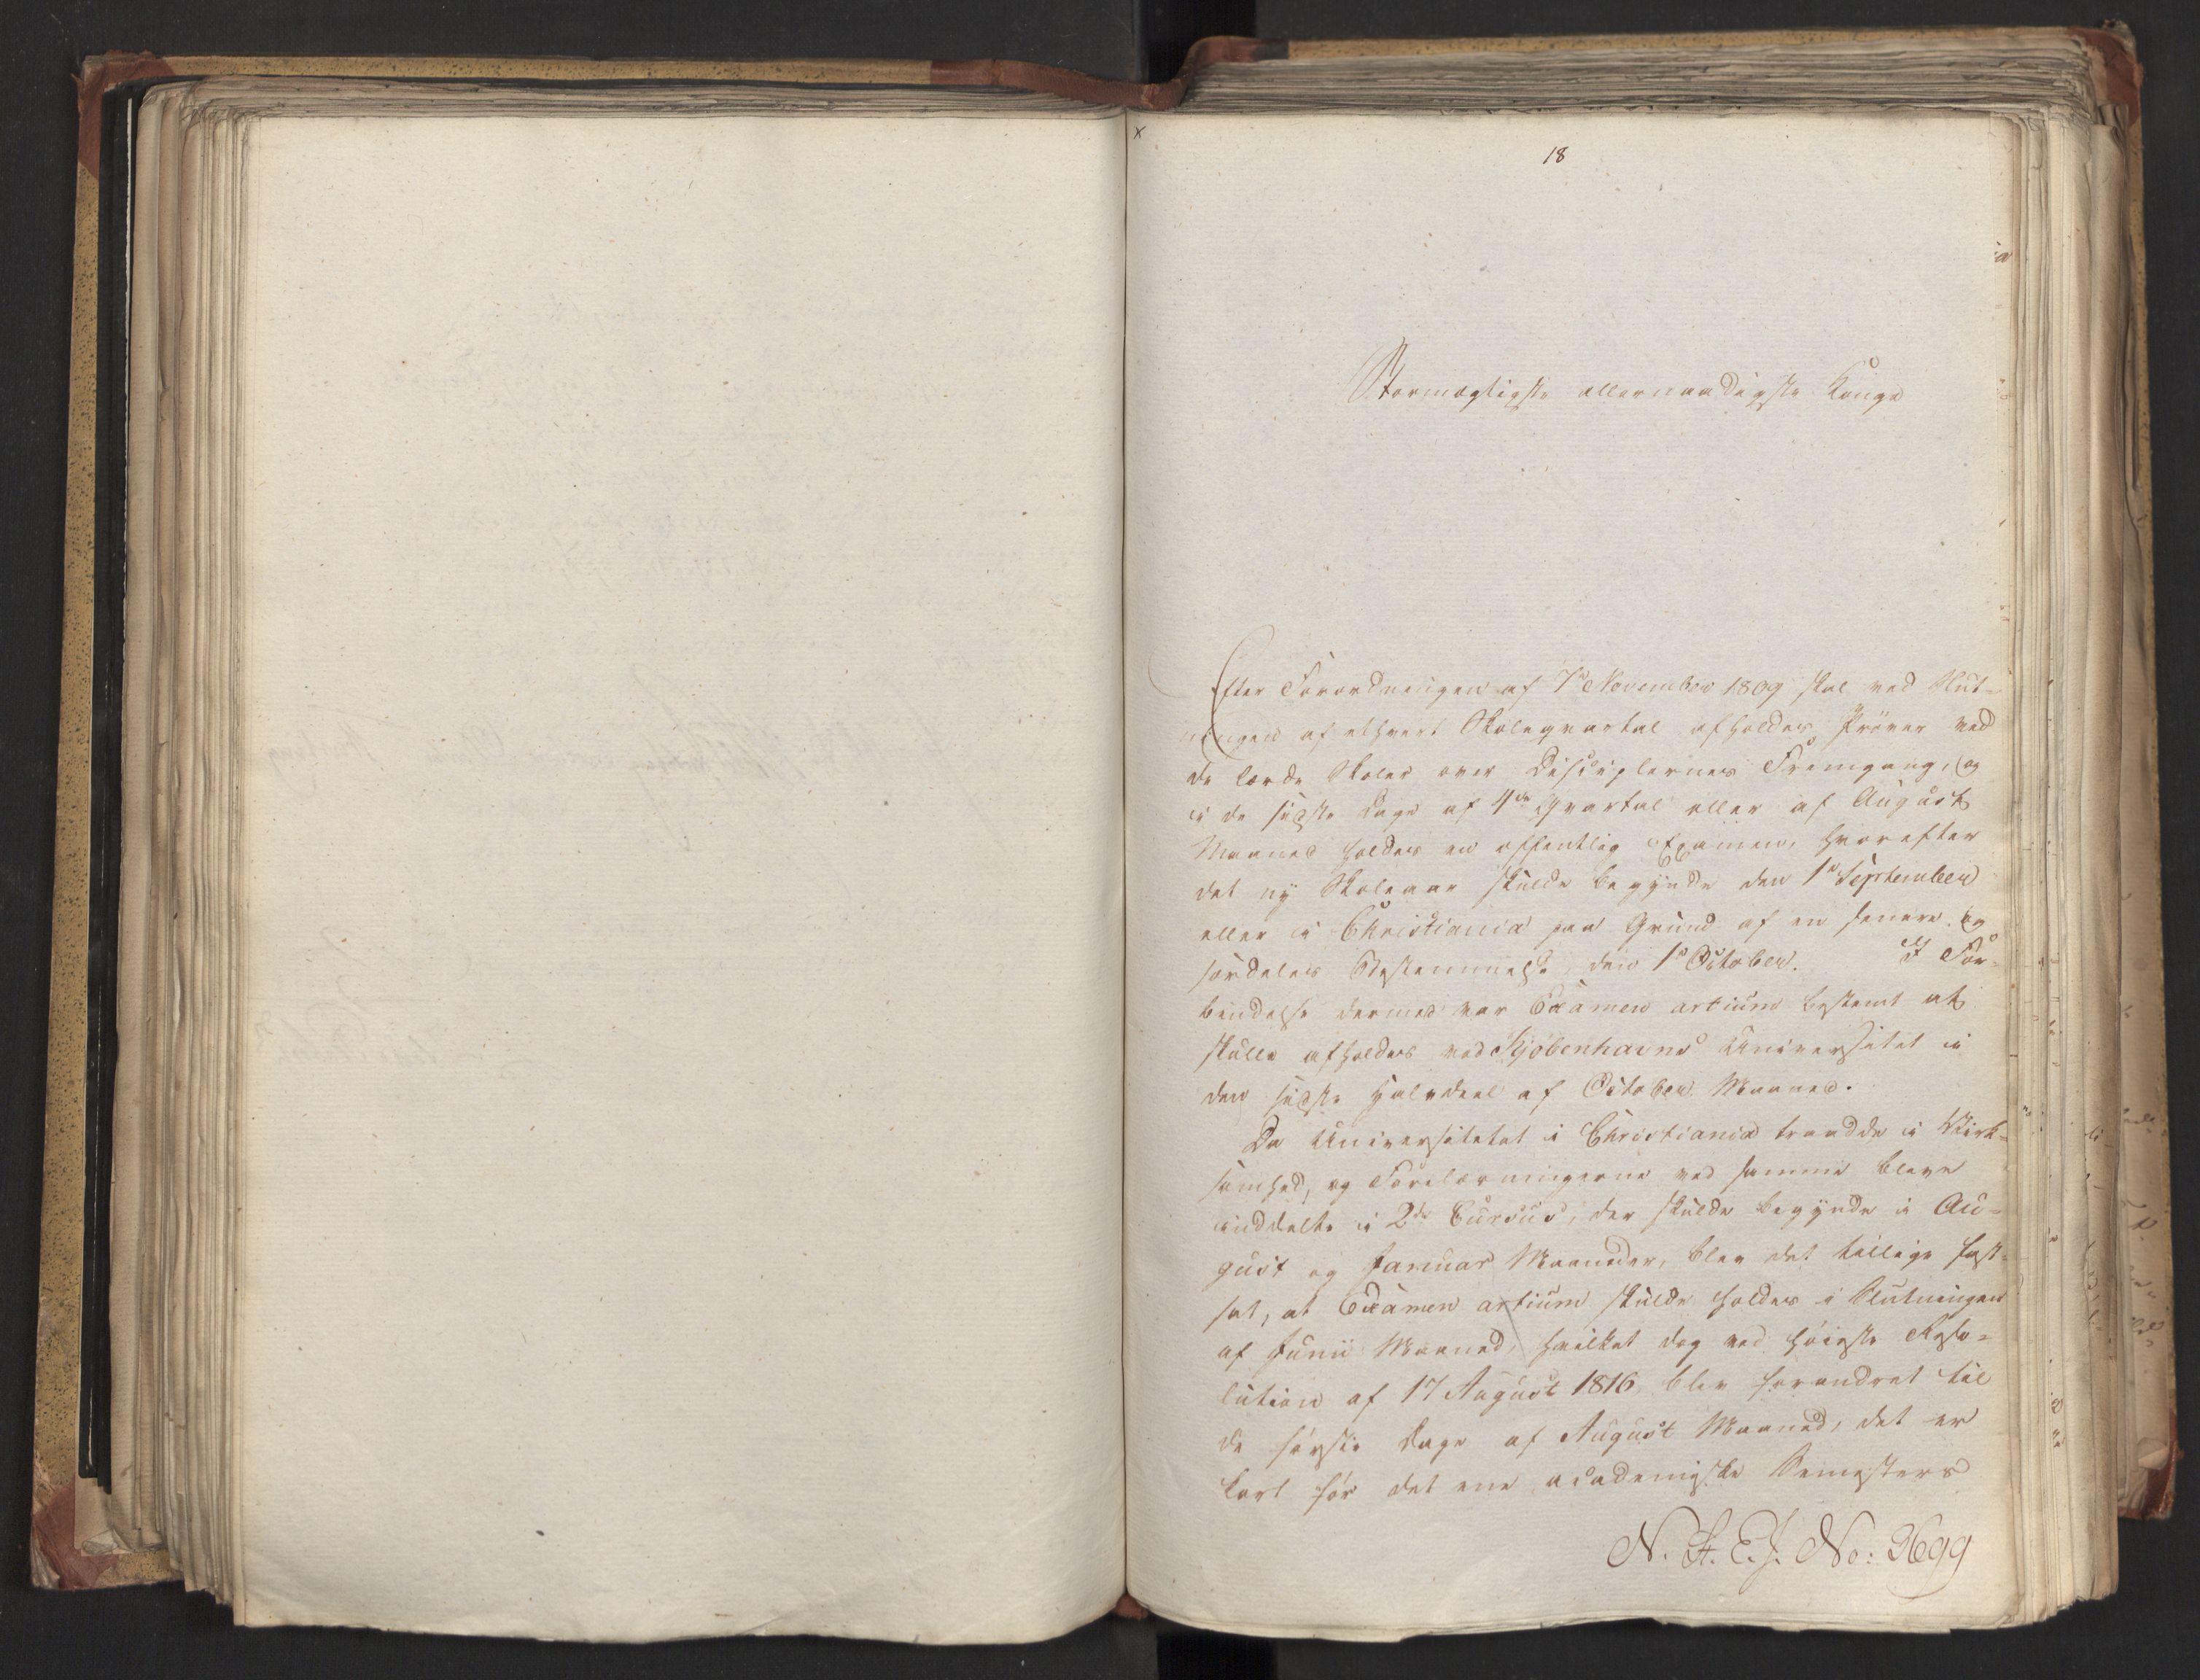 18
Stormægtigste allernaadigste Konge
Efter Forordningen af 7de November 1809 skal ved Slut-
ningen af ethvert Skoleqvartal afholdes Prøver ved
de lærde Skoler over Disciplernes Fremgang, og
i de sidste Dage af 4de Qvartal eller af August
Maaned holdes en offentlig Examen, hvorefter
det ny Skoleaar skulde begynde den 1e September
eller i Christiania paa Grund af en senere og
særdeles Bestemmelse, den 1e October. I For-
bindelse dermed var Examen artium bestemt at
skulle afholdes ved Kjøbenhavns Universitet i
den sidste Halvdeel af October Maaned.
Da Universitetet i Christiania traadde i Virk-
somhed, og Forelæsningerne ved samme bleve
inddelte i 2de Cursus, der skulde begynde i Au-
gust og Januar Maaneder, blev det tillige fast-
sat, at Examen artium skulde holdes i Slutningen
af Junii Maaned, hvilket dog ved høieste Reso-
lution af 17 August 1816 blev forandret til
de første Dage af August Maaned, det er
kort før det ene academiske Semesters
N. St. E. J. No: 3699